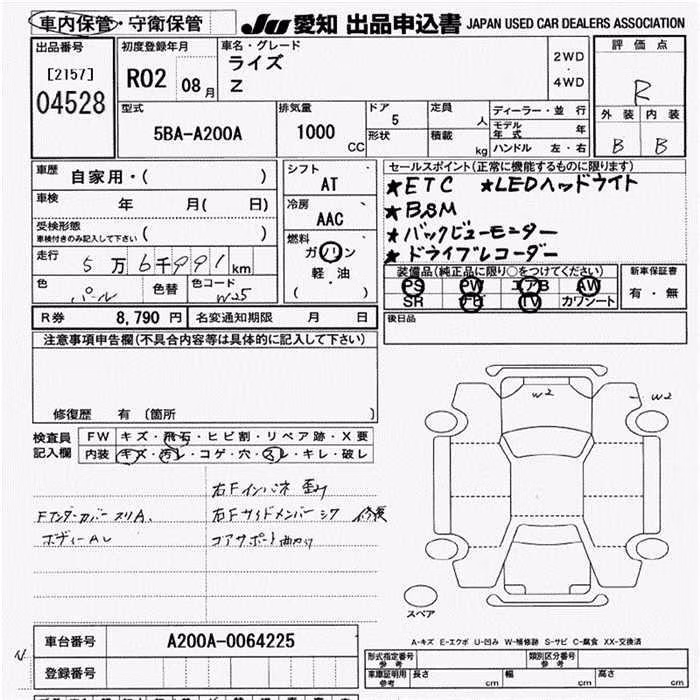 車内保管・守衛保管 JU 愛知 出品申込書 JAPAN USED CAR DEALERS ASSOCIATION
出品番号
[2157]
04528
初度登録年月
R02 08月
車名・グレード
ライズ
Z
2WD
・
4WD
評価点
R
外装 内装
B B
型式
5BA-A200A
排気量
1000 CC
ドア
5
形状
定員 人
積載 kg
ディーラー・並行
モデル年式 年
ハンドル 左・右
車歴
自家用・( )
車検 年 月( 日)
受検形態
車検付きのみ記入して下さい ( )
走行 5万6千991km
色 パール 色替 色コード W25
シフト
AT
冷房
AAC
燃料
ガソリン
軽・油
( )
セールスポイント(正常に機能するものに限ります)
★ETC ★LEDヘッドライト
★BSM
★バックビューモニター
★ドライブレコーダー
装備品(純正品に限り○をつけてください)
PS PW エアB AW
SR ナビ TV カワシート
新車保証書
有・無
R券 8,790円 名変通知期限 月 日
後日品
注意事項申告欄(不具合内容等は具体的に記入して下さい)
修復歴 有 〔箇所 〕
検査員
記入欄
FW キズ・飛石・ヒビ割・リペア跡・X要
内装 キズ・汚レ・コゲ・穴・スレ・キレ・破レ
右Fインパネ
Fアンダーカバースリ A、 右Fサイドメンバーシワ 修復
ボディーAU コアサポート曲リ
W2
W2
スペア
A-キズ E-エクボ U-凹み W-補修跡 S-サビ C-腐食 XX-交換済
車台番号 A200A-0064225
登録番号
形式指定番号
参考
類別区分番号
参考
車庫証明用
参考
長さ cm 幅 cm 高さ cm